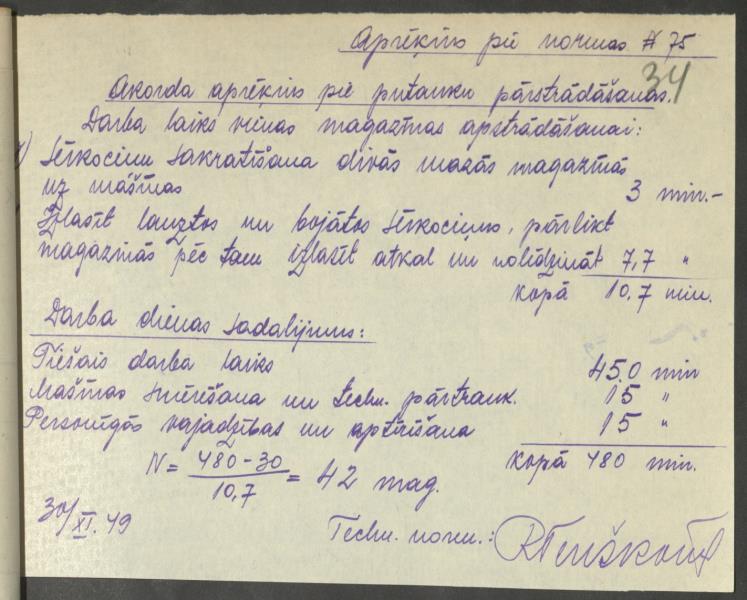 Aprēķins pie normas # 75
34
Akorda aprēķins pie putanku pārstrādāšanas.
Darba laiks vienas magazīnas apstrādāšanai:
Sērkociņu sakratīšana divās mazās magazīnās
uz mašīnas 3 min.-
Izlasīt lauztos un bojātos sērkociņus, pārlikt
magazīnās pēc tam izlasīt atkal un nolīdzināt 7,7 "
kopā 10,7 min.
Darba dienas sadalījums:
Tiešais darba laiks 450 min
Mašīnas smērēšana un techn. pārtrauk. 15 "
Personīgās vajadzības un aptīrīšana 15 "
kopā 480 min.
N = 480-30 / 10,7 = 42 mag.
30/XI. 49
Techn. norm.: